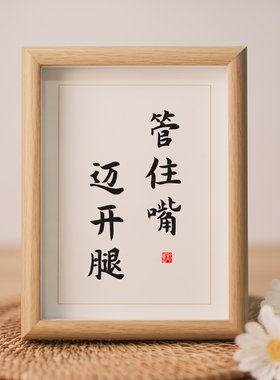 管住嘴
迈开腿